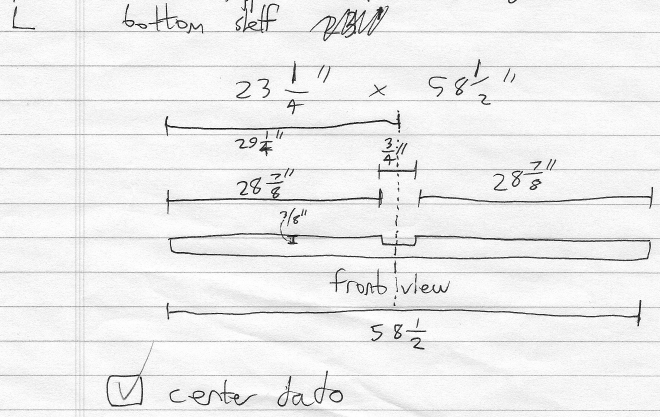 L bottom shelf
23 1/4" x 58 1/2"
29 1/4"
3/4"
28 7/8" 28 7/8"
front view
58 1/2
center dado